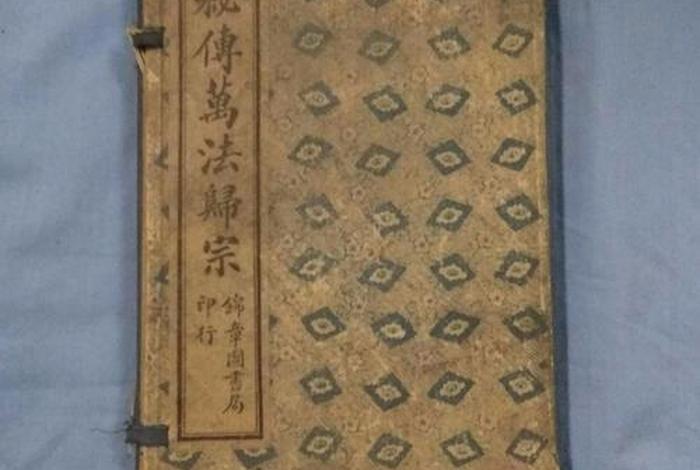 傳萬法歸宗
錦章圖書局
印行